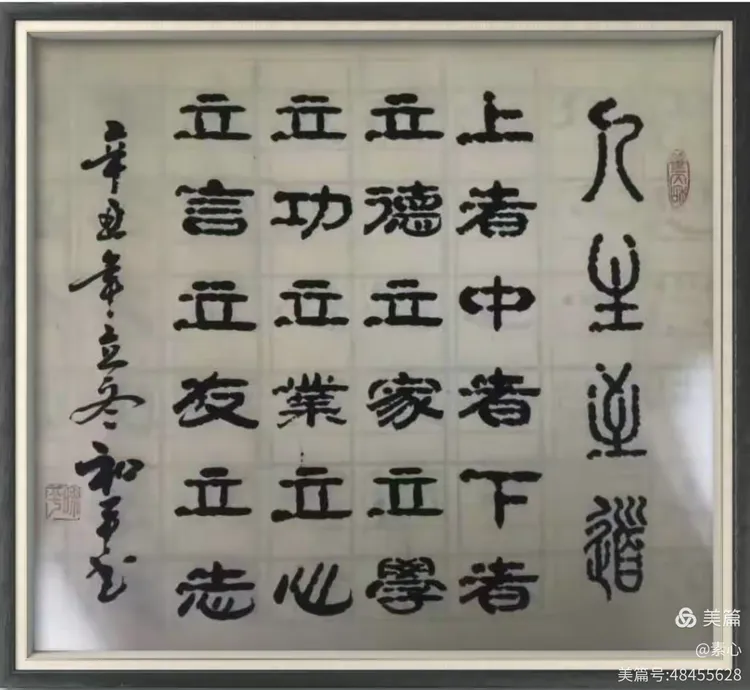 人生至道
上者中者下者
立德立家立學
立功立業立心
立言立友立志
辛丑年立冬和平书
美篇
@素心
美篇号:48455628